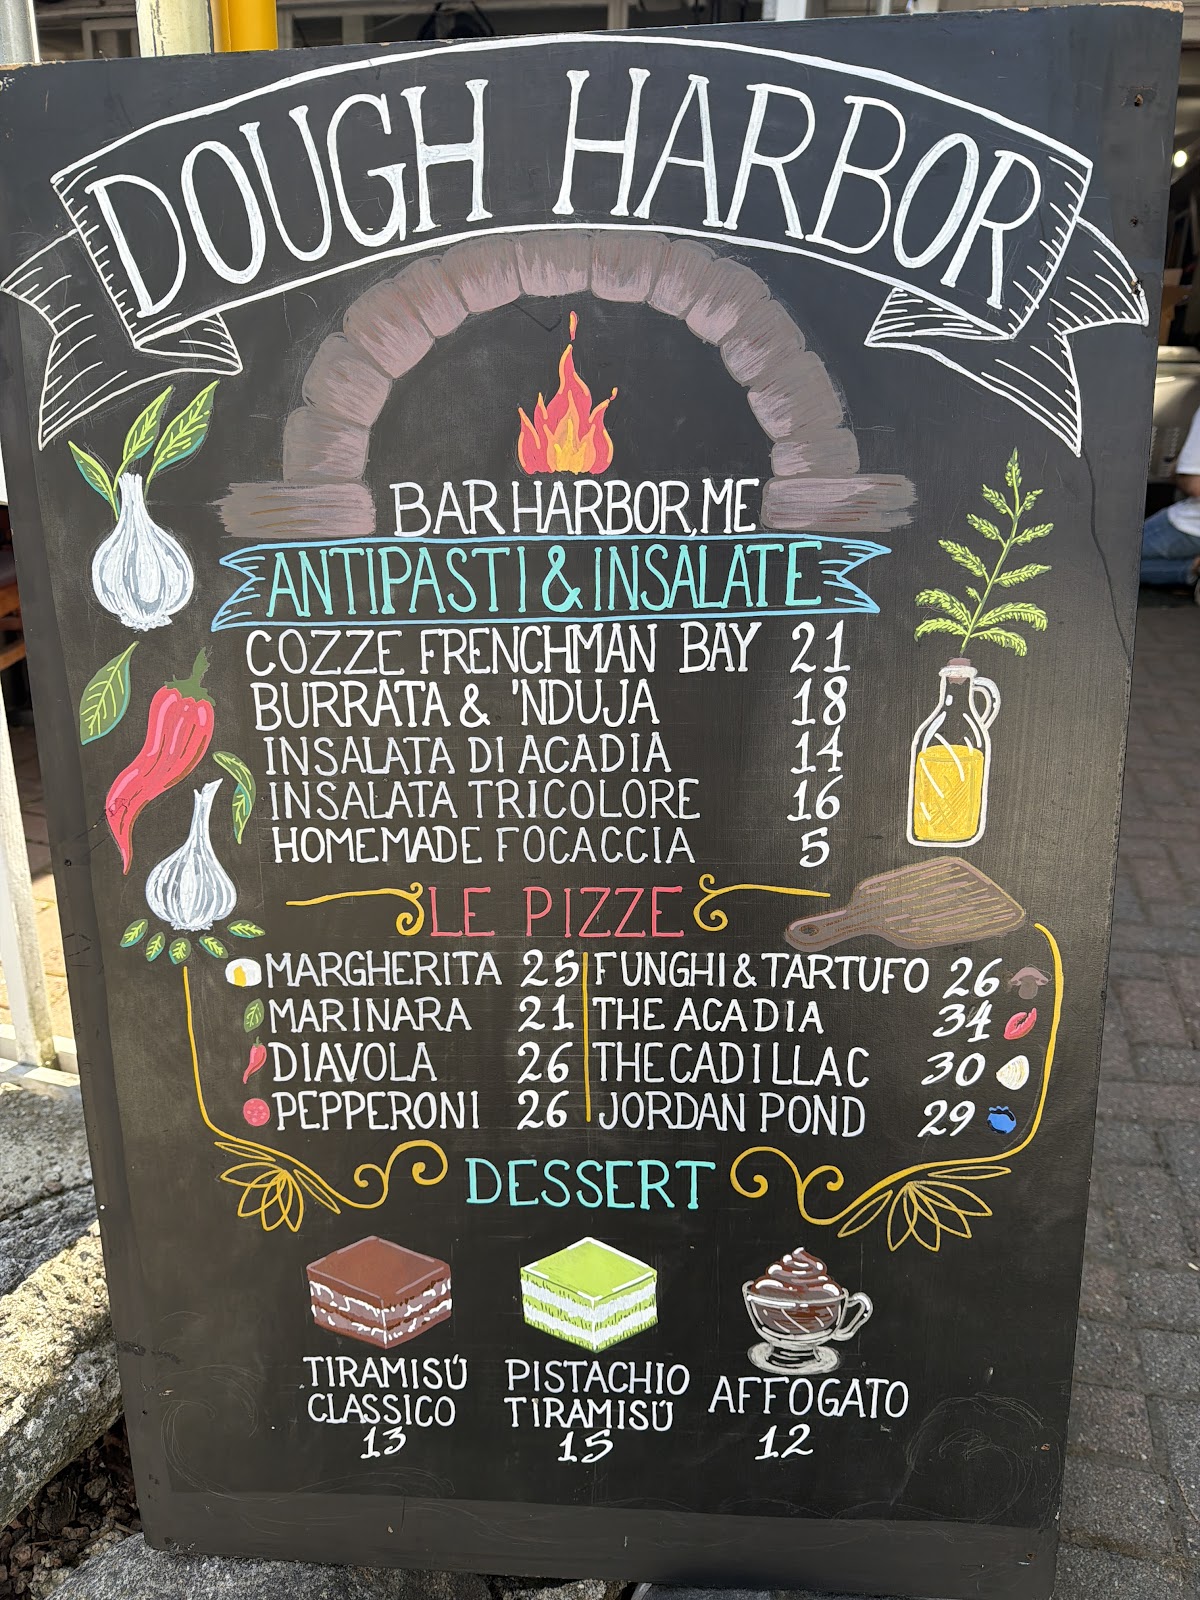 DOUGH HARBOR
BAR HARBOR, ME
ANTIPASTI & INSALATE
COZZE FRENCHMAN BAY 21
BURRATA & 'NDUJA 18
INSALATA DI ACADIA 14
INSALATA TRICOLORE 16
HOMEMADE FOCACCIA 5
LE PIZZE
MARGHERITA 25
MARINARA 21
DIAVOLA 26
PEPPERONI 26
FUNGHI & TARTUFO 26
THE ACADIA 34
THE CADILLAC 30
JORDAN POND 29
DESSERT
TIRAMISÚ
CLASSICO
13
PISTACHIO
TIRAMISÚ
15
AFFOGATO
12